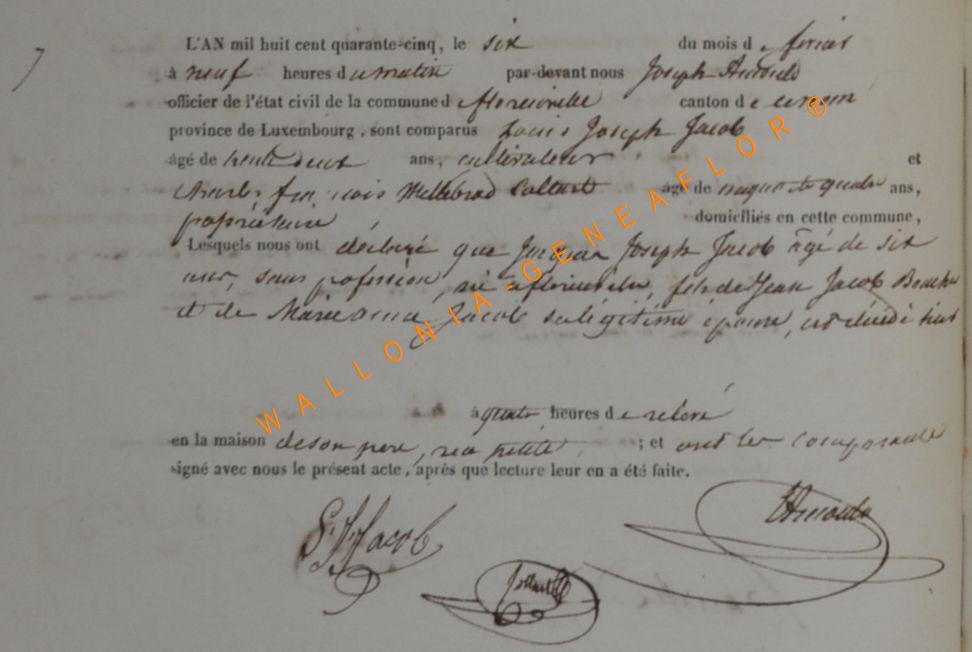 7
L'AN mil huit cent quarante-cinq, le six du mois de fevrier
à neuf heures du matin par-devant nous Joseph Arnould
officier de l'état civil de la commune de florenville canton de
province de Luxembourg, sont comparus Louis Joseph Jacob
âgé de trente deux ans, cultivateur et
Charles françois Collard âgé de cinquante quatre ans,
propriétaire domiciliés en cette commune,
Lesquels nous ont déclaré que Joseph Jacob âgé de six
, sans profession, né a florenville, fils de Jean Jacob
et de Marie anne Jacob sa légitime épouse, est décédé hier
à quatre heures de relevé
en la maison de son père, rue petite ; et ont les comparants
signé avec nous le présent acte, après que lecture leur en a été faite.
Jacob
Arnould
WALLONIA-GENEAFLOR ®